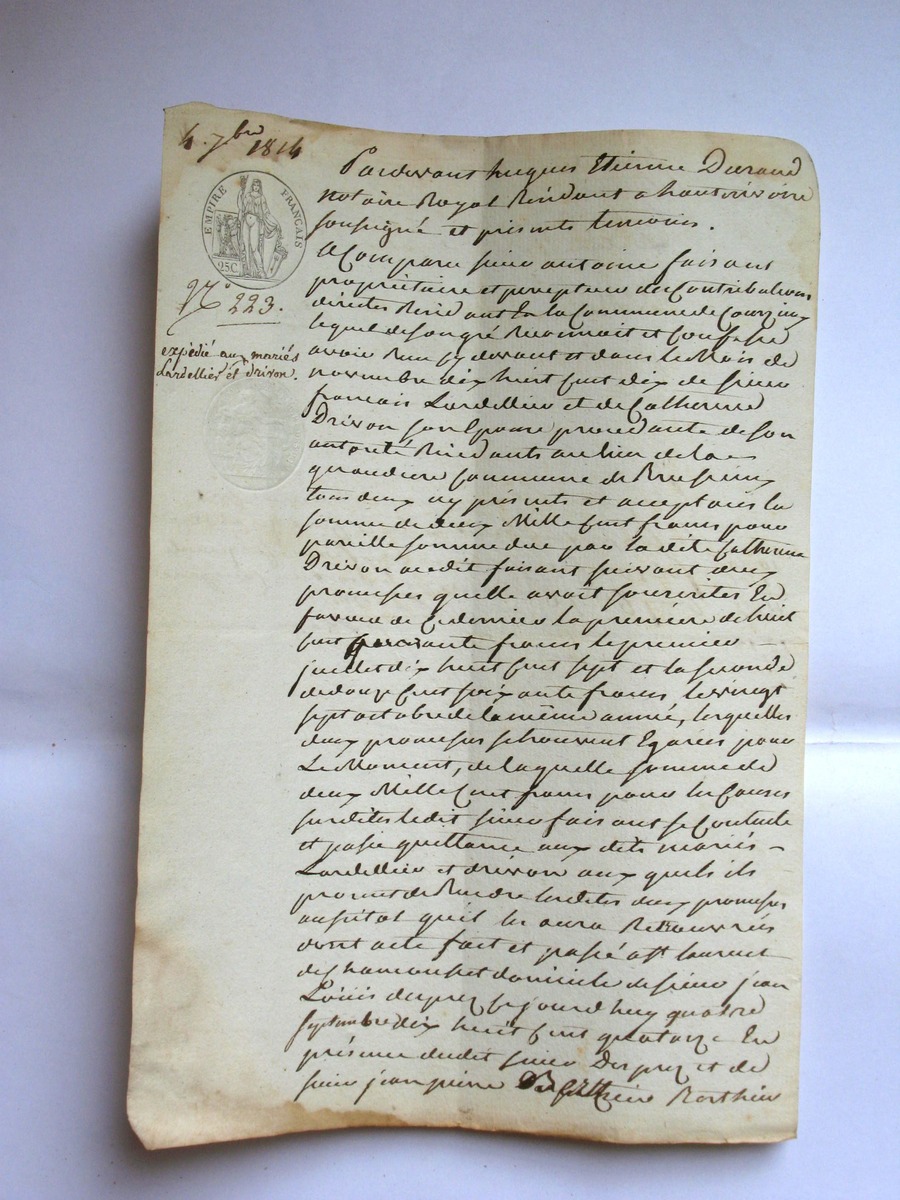 4. 7bre 1814
EMPIRE FRANÇAIS
25C
N° 223.
expédié aux mariés
Lardellier et drivon.
Pardevant hugues Etienne Durand
notaire Royal Résidant a hauterivoire
soussigné et présents temoins.
A Comparu sieur antoine faisant
propriétaire et percepteur des Contributions
directes Résidant En la Commune de Courzieux
lequel de son gré Reconnait et Confesse
avoir Reçu cy devant et dans le Mois de
novembre dix huit cent dix de sieur
francois Lardellier et de Catherine
Drivon son Epouse procedante de son
autorité Résidants au lieu de la
giraudiere Commune de Brussieux
tous deux icy présents et acceptants la
somme de deux Mille Cent francs pour
pareille somme due par la dite Catherine
Drivon au dit faisant suivant deux
promesses quelle avoit souscrites En
faveur de Ce dernier la première de huit
cent quarante francs le premier
juillet dix huit cent sept et la seconde
de douze Cent soixante francs le vingt
sept octobre de la même année, lesquelles
deux promesses se trouvent Egarées pour
Le Moment, de laquelle somme de
deux Mille Cent francs pour les Causes
susdites le dit sieur faisant se Contente
et passe quittance aux dits mariés
Lardellier et drivon aux quels il
promet de Rendre les dites deux promesses
aussitot qu'il les aura Retrouvées
dont acte fait et passé a St. laurent
de chamousset domicile de sieur jean
Louis desprez ce jourd'huy quatre
septembre dix huit cent quatorze En
présence dudit sieur Desprez et de
sieur jean pierre Berthier